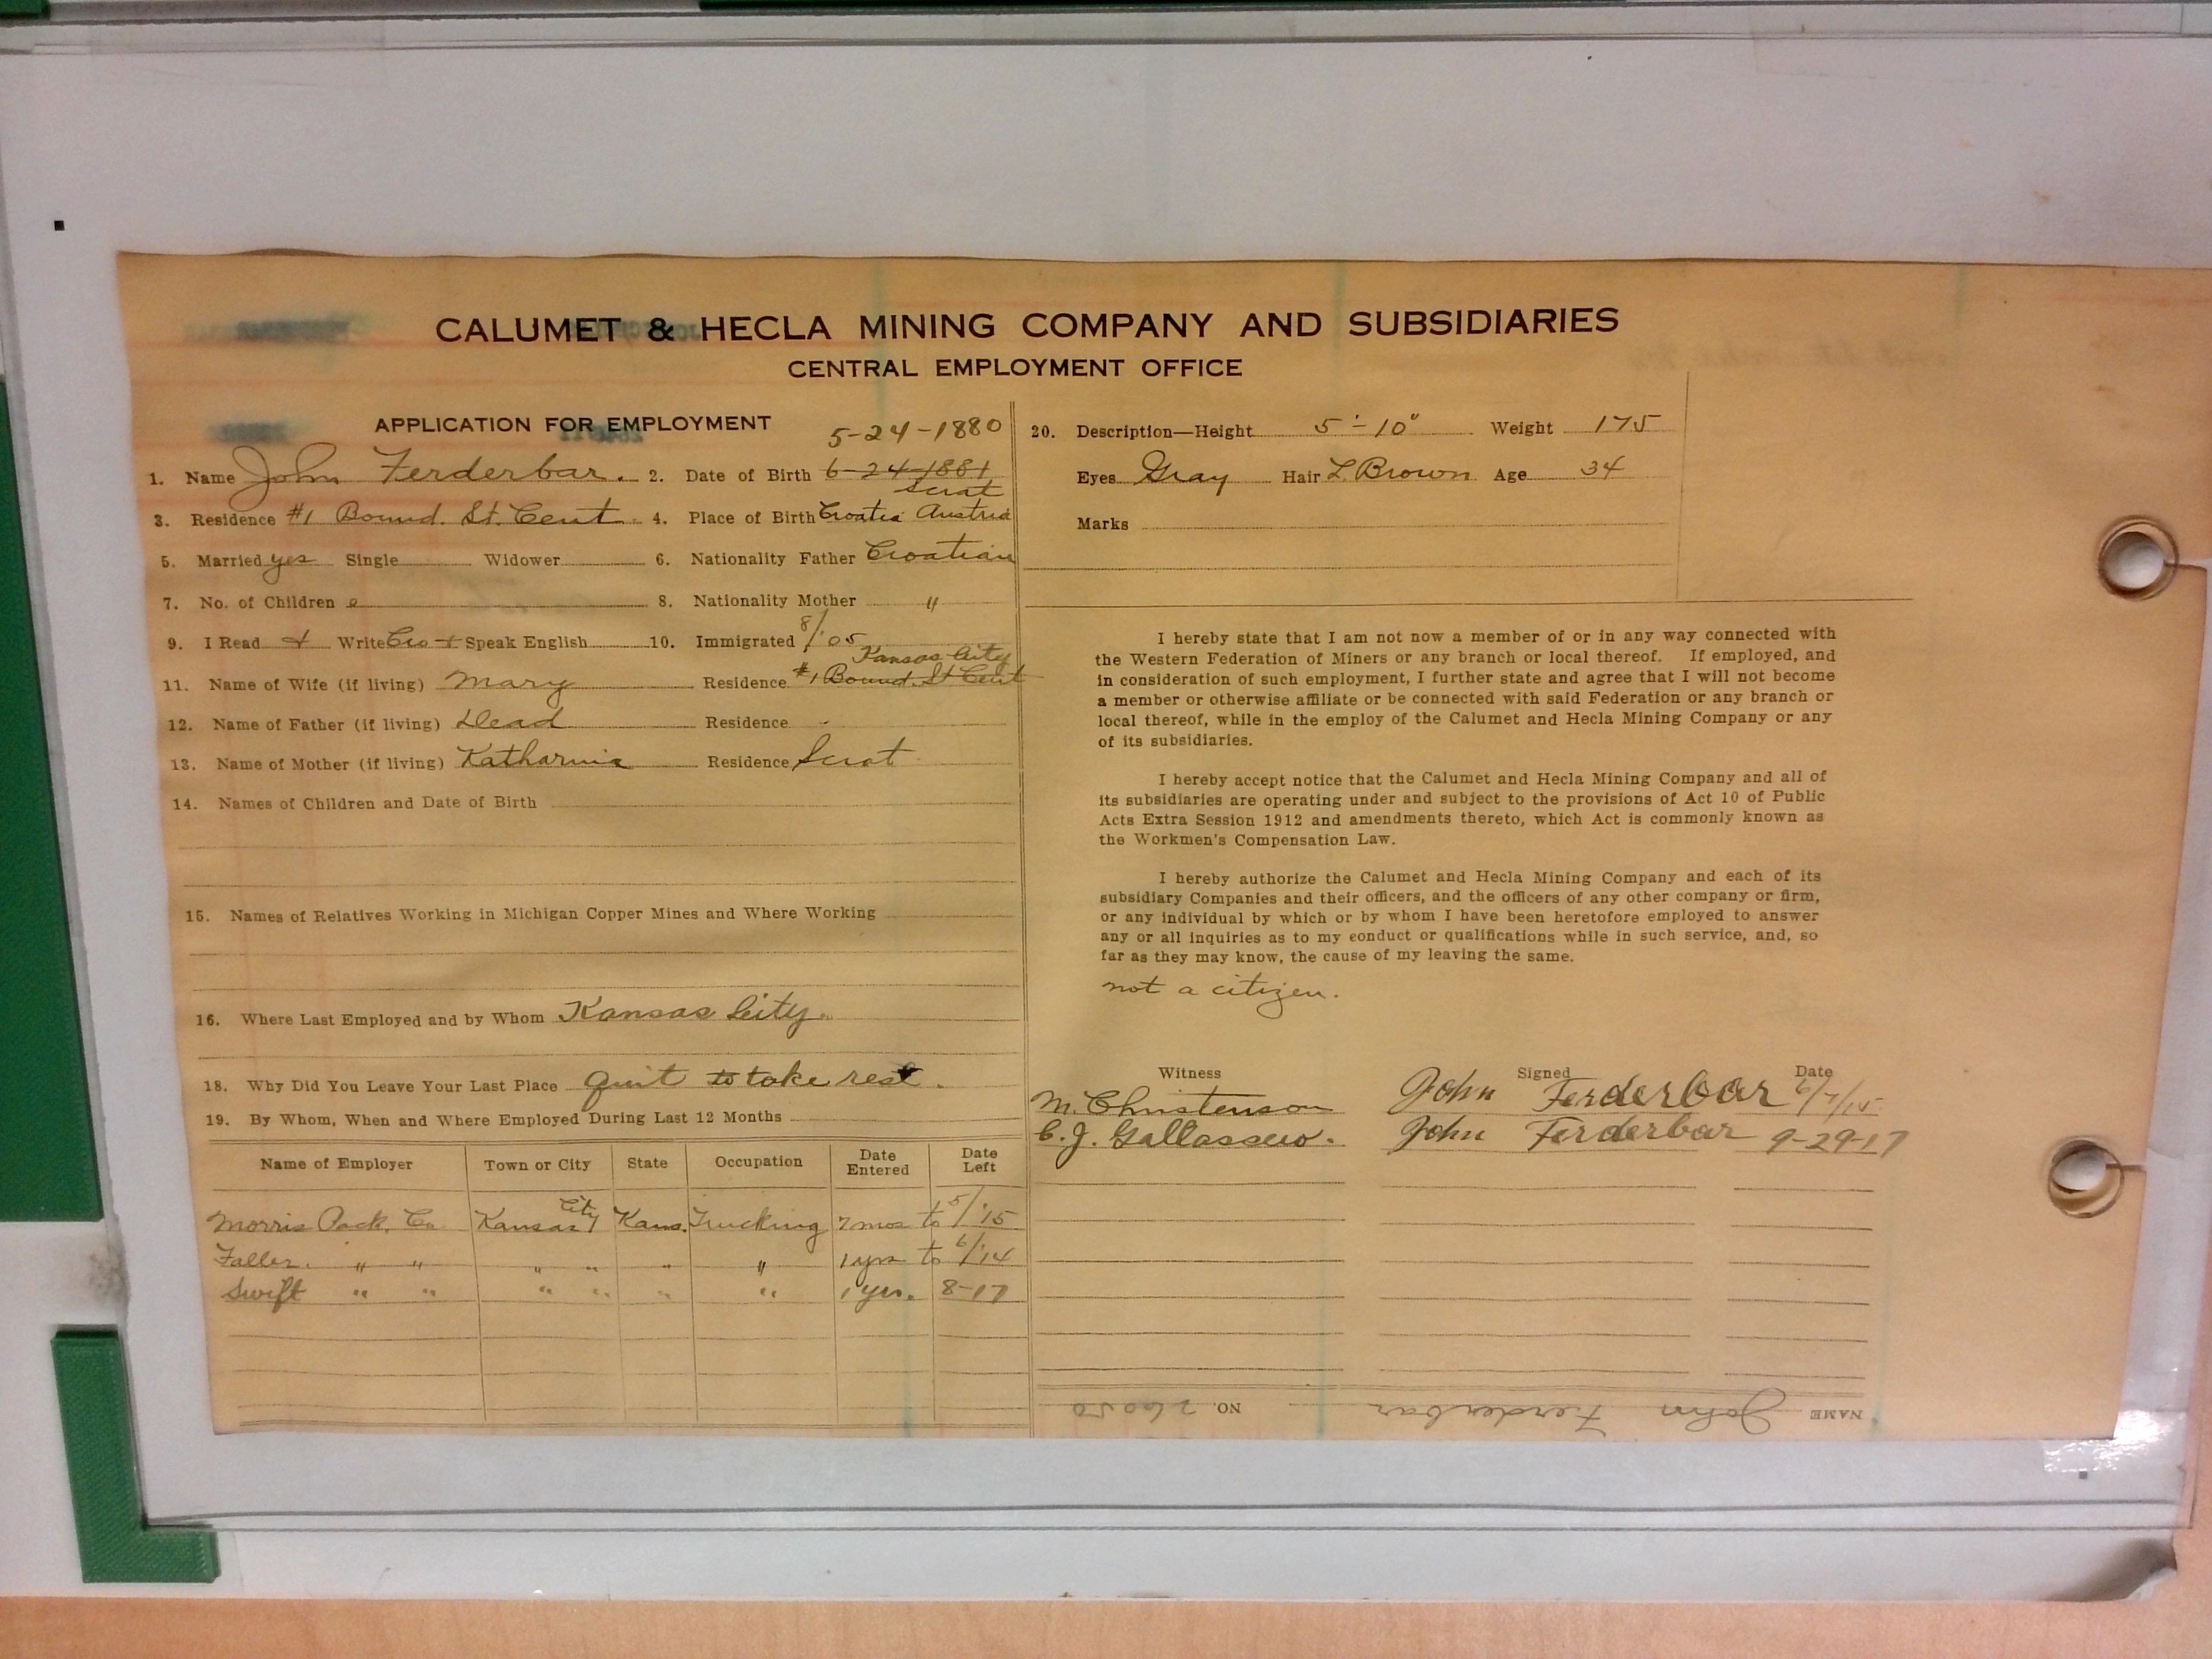 CALUMET & HECLA MINING COMPANY AND SUBSIDIARIES
CENTRAL EMPLOYMENT OFFICE
APPLICATION FOR EMPLOYMENT
5-24-1880
1. Name John Ferderbar. 2. Date of Birth 6-24-1881
Scrat
3. Residence #1 Bound. St. Cent. 4. Place of Birth Croatia Austria
5. Married yes Single Widower 6. Nationality Father Croatian
7. No. of Children 0 8. Nationality Mother "
9. I Read + Write Cro + Speak English 10. Immigrated 8/'05
Kansas City
11. Name of Wife (if living) Mary Residence #1 Bound. St Cent
12. Name of Father (if living) Dead Residence -
13. Name of Mother (if living) Katharina Residence Scrat
14. Names of Children and Date of Birth
15. Names of Relatives Working in Michigan Copper Mines and Where Working
16. Where Last Employed and by Whom Kansas City.
18. Why Did You Leave Your Last Place Quit to take rest.
19. By Whom, When and Where Employed During Last 12 Months
Name of Employer Town or City State Occupation Date Entered Date Left
Morris Pack. Co. Kansas City Kans. Trucking 7 mos to 5/'15
Faller. " " " " " " 1 yrs to 6/'14
Swift " " " " " " 1 yr. 8-17
20. Description—Height 5'-10" Weight 175
Eyes Gray Hair L. Brown Age 34
Marks
I hereby state that I am not now a member of or in any way connected with
the Western Federation of Miners or any branch or local thereof. If employed, and
in consideration of such employment, I further state and agree that I will not become
a member or otherwise affiliate or be connected with said Federation or any branch or
local thereof, while in the employ of the Calumet and Hecla Mining Company or any
of its subsidiaries.
I hereby accept notice that the Calumet and Hecla Mining Company and all of
its subsidiaries are operating under and subject to the provisions of Act 10 of Public
Acts Extra Session 1912 and amendments thereto, which Act is commonly known as
the Workmen's Compensation Law.
I hereby authorize the Calumet and Hecla Mining Company and each of its
subsidiary Companies and their officers, and the officers of any other company or firm,
or any individual by which or by whom I have been heretofore employed to answer
any or all inquiries as to my conduct or qualifications while in such service, and, so
far as they may know, the cause of my leaving the same.
not a citizen.
Witness Signed Date
M. Christenson John Ferderbar 6/7/15
C. J. Gallassero. John Ferderbar 9-29-17
NAME John Ferderbar NO. 26050